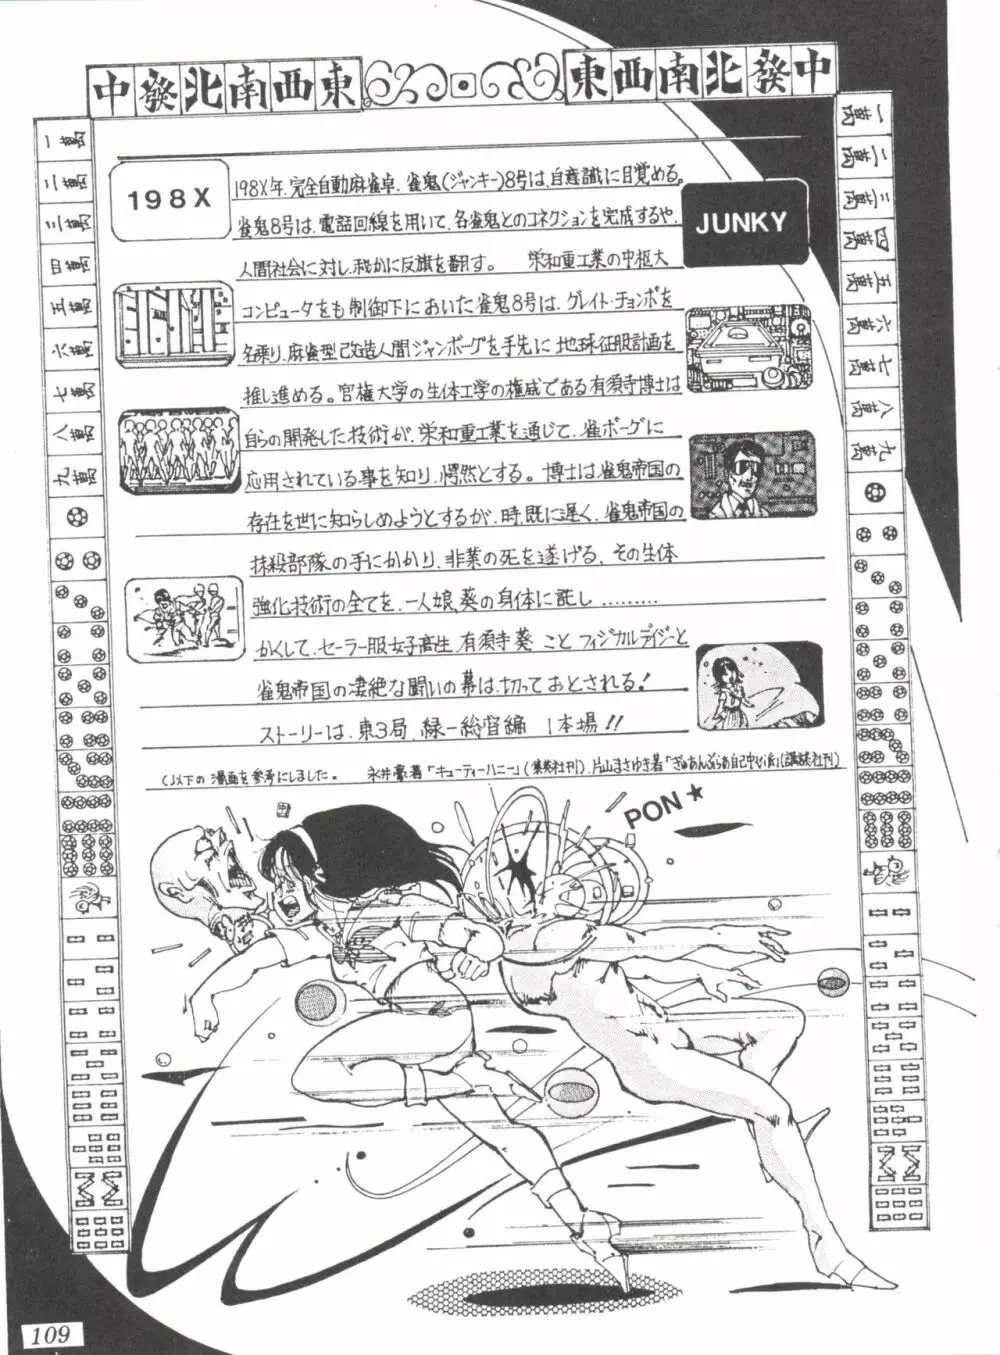 中發北南西東 東西南北發中
一萬
二萬
三萬
四萬
五萬
六萬
七萬
八萬
九萬
一萬
二萬
三萬
四萬
五萬
六萬
七萬
八萬
九萬
198X
JUNKY
198X年、完全自動麻雀卓、雀鬼(ジャンキー)8号は、自意識に目覚める。
雀鬼8号は、電話回線を用いて、各雀鬼とのコネクションを完成するや、
人間社会に対し、秘かに反旗を翻す。 栄和重工業の中枢大
コンピュータをも制御下においた雀鬼8号は、グレイト・チョンボを
名乗り、麻雀型改造人間ジャンボーグを手先に地球征服計画を
推し進める。官権大学の生体工学の権威である有須寺博士は
自らの開発した技術が、栄和重工業を通じて、雀ボーグに
応用されている事を知り、愕然とする。博士は雀鬼帝国の
存在を世に知らしめようとするが、時、既に遅く、雀鬼帝国の
抹殺部隊の手にかかり、非業の死を遂げる、その生体
強化技術の全てを、一人娘、葵の身体に託し………
かくして、セーラー服女子高生、有須寺葵 こと フィジカルデイジーと
雀鬼帝国の凄絶な闘いの幕は、切っておとされる!
ストーリーは、東3局、緑一総督編 1本場!!
(以下の漫画を参考にしました。 永井豪著「キューティーハニー」(集英社刊)、片山まさゆき著「ぎゅわんぶらあ自己中心派」(講談社刊)
PON★
中
109